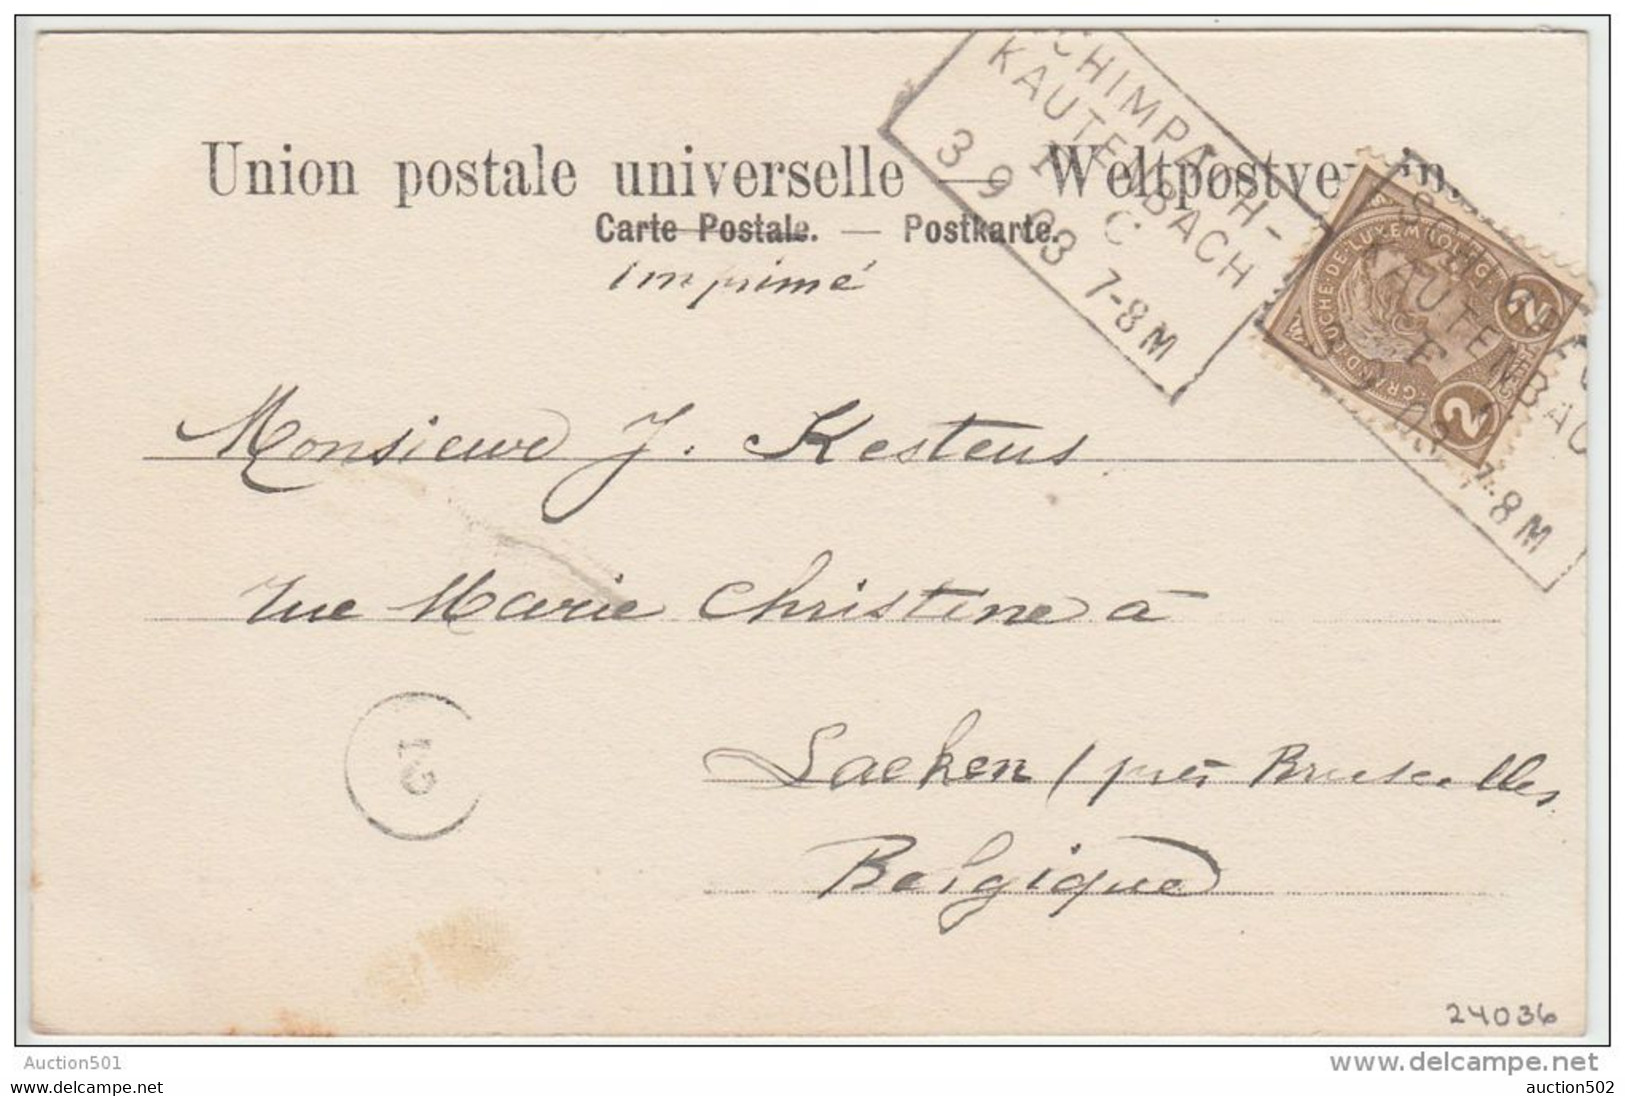 Union postale universelle — Weltpostverein.
Carte Postale. — Postkarte.
Imprimé
SCHIMPACH-
KAUTENBACH
3 9 03 7-8M
GRAND-DUCHE-DE-LUXEMBOURG
2
2
KAUTENBACH
03 7-8M
Monsieur J. Kestens
rue Marie Christine à
Laeken / près Bruxelles
Belgique
12
24036
Auction501
www.delcampe.net
www.delcampe.net
auction502